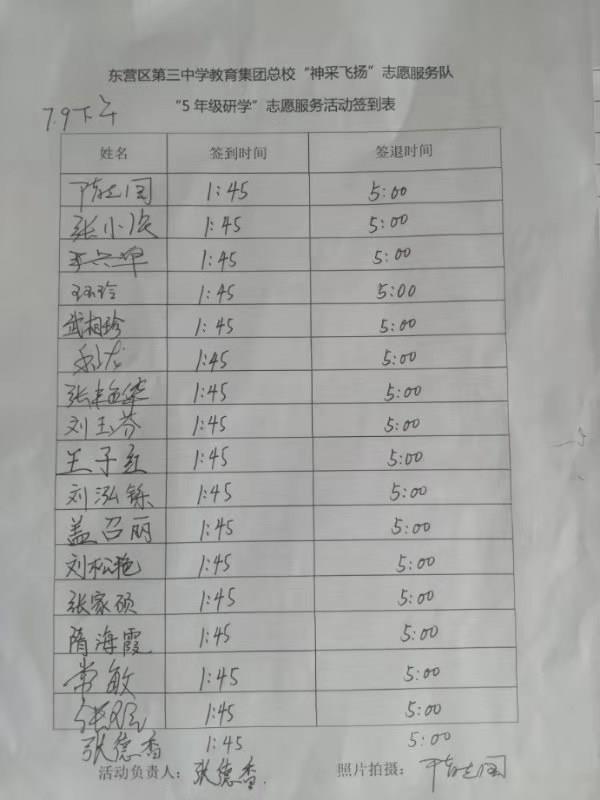 东营区第三中学教育集团总校“神采飞扬”志愿服务队
“5 年级研学”志愿服务活动签到表
7.9下午
姓名 签到时间 签退时间
1:45 5:00
张小滨 1:45 5:00
1:45 5:00
环玲 1:45 5:00
武相珍 1:45 5:00
1:45 5:00
张艳华 1:45 5:00
刘玉芬 1:45 5:00
王子红 1:45 5:00
刘泓铄 1:45 5:00
盖召丽 1:45 5:00
刘松艳 1:45 5:00
张家硕 1:45 5:00
隋海霞 1:45 5:00
常敏 1:45 5:00
1:45 5:00
张德香 1:45 5:00
活动负责人：张德香. 照片拍摄：